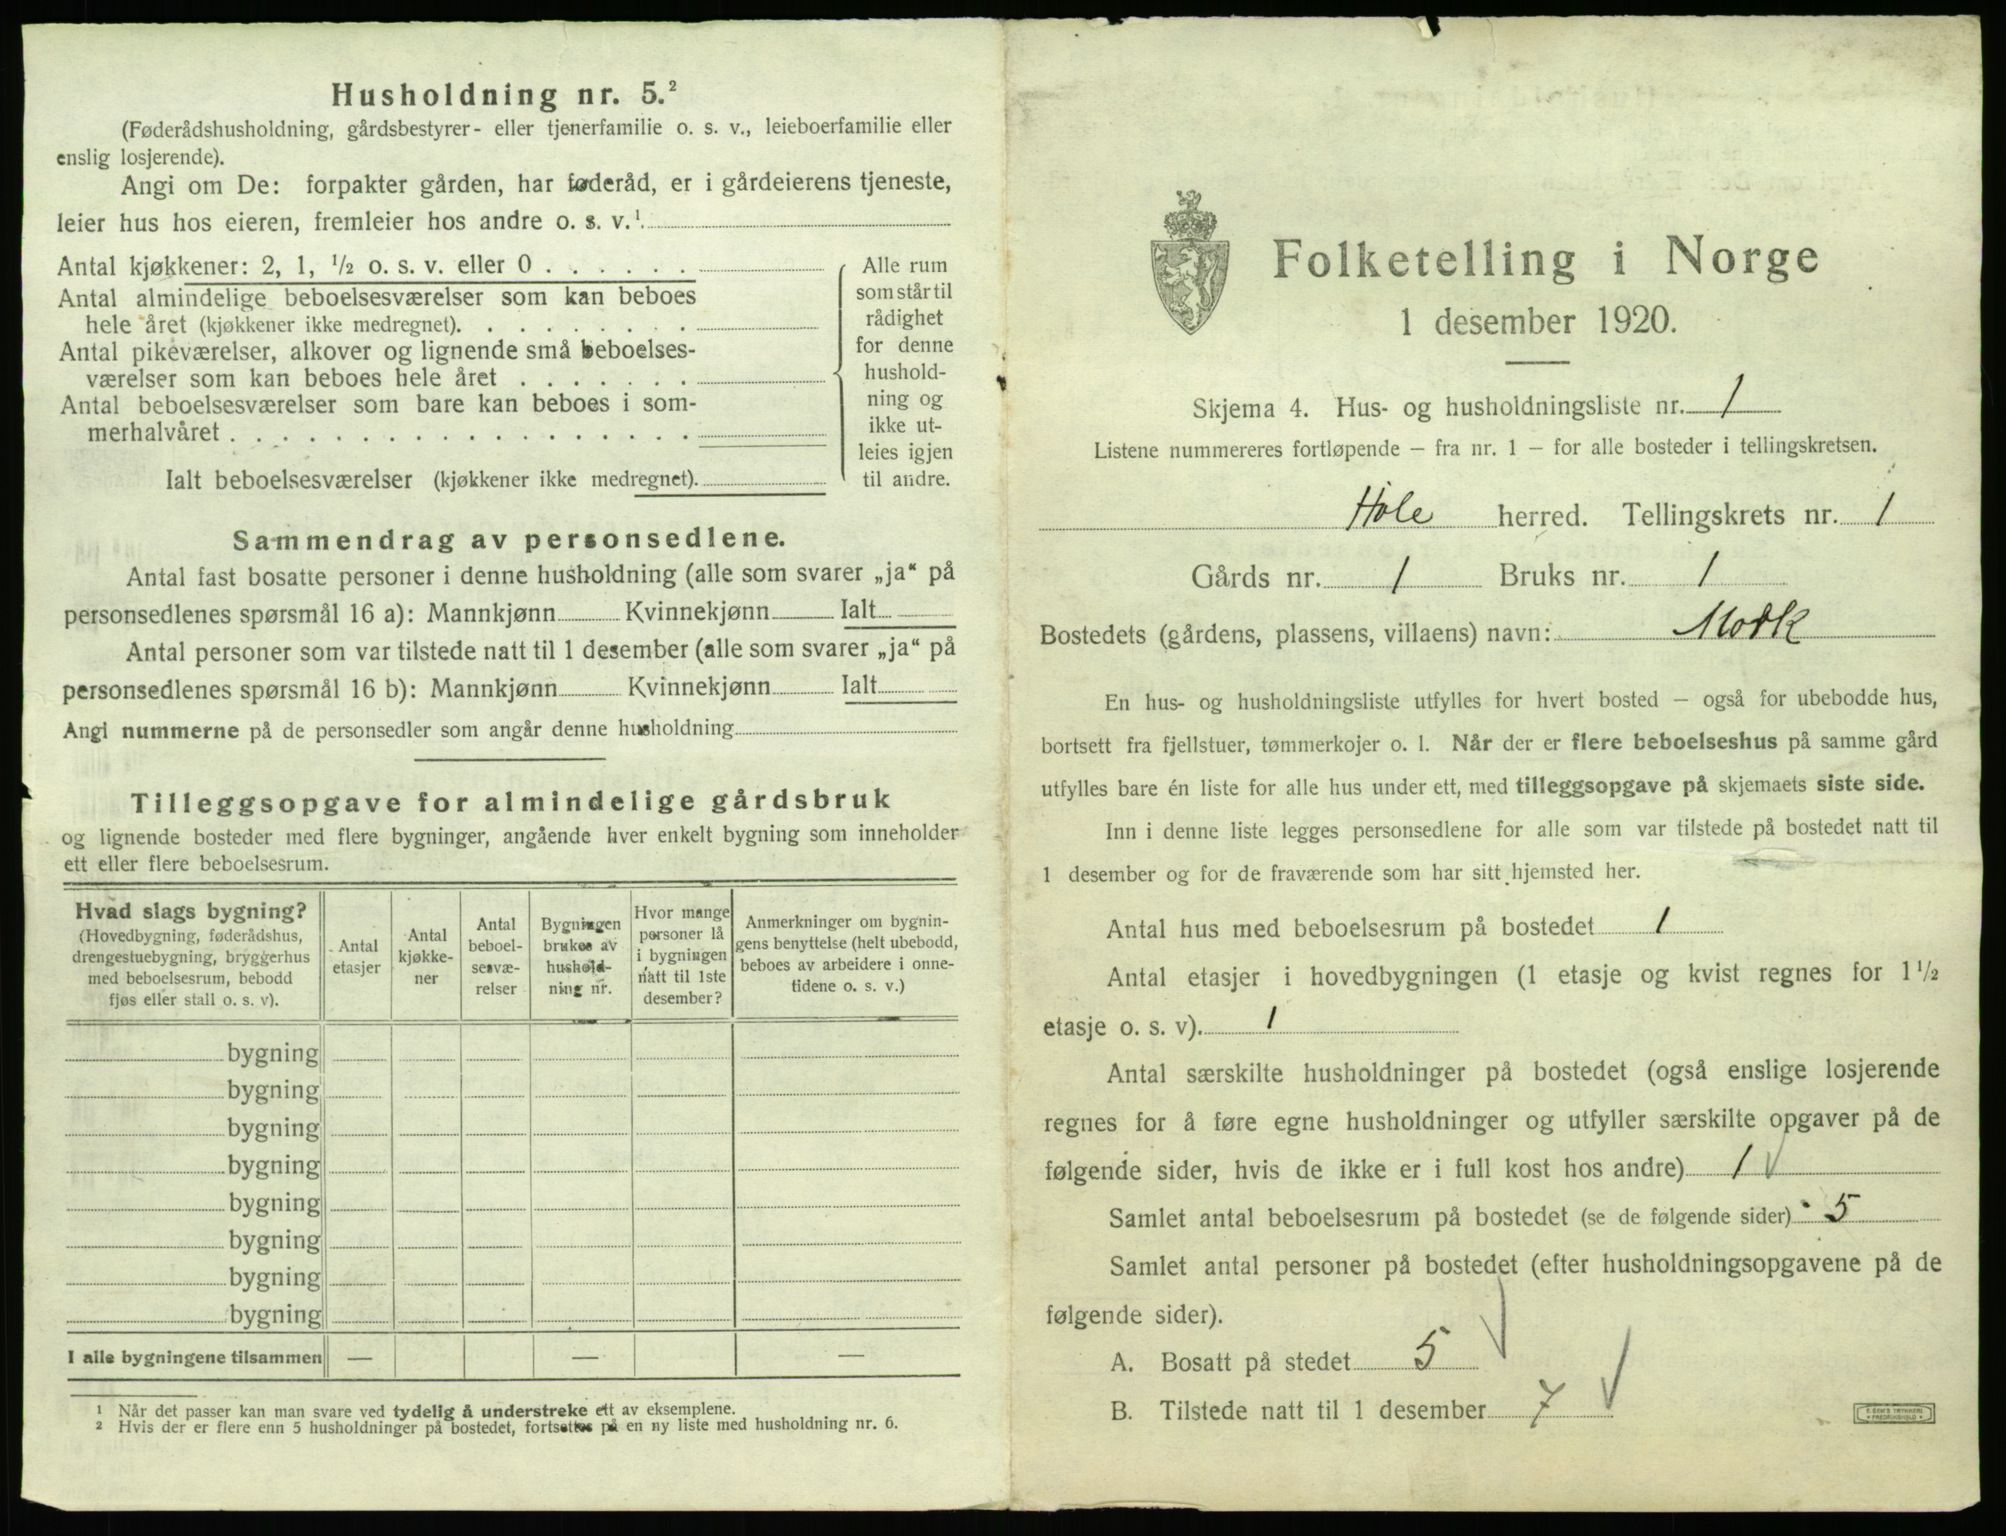 Husholdning nr. 5.²
(Føderådshusholdning, gårdsbestyrer- eller tjenerfamilie o. s. v., leieboerfamilie eller
enslig losjerende).
Angi om De: forpakter gården, har føderåd, er i gårdeierens tjeneste,
leier hus hos eieren, fremleier hos andre o. s. v.¹
Antal kjøkkener: 2, 1, ½ o. s. v. eller 0 . . . . . .
Antal almindelige beboelsesværelser som kan beboes
hele året (kjøkkener ikke medregnet). . . . . . . . .
Antal pikeværelser, alkover og lignende små beboelses-
værelser som kan beboes hele året . . . . . . .
Antal beboelsesværelser som bare kan beboes i som-
merhalvåret . . . . . . . . . . . . . . . . . .
Ialt beboelsesværelser (kjøkkener ikke medregnet).
Alle rum
som står til
rådighet
for denne
hushold-
ning og
ikke ut-
leies igjen
til andre.
Sammendrag av personsedlene.
Antal fast bosatte personer i denne husholdning (alle som svarer „ja“ på
personsedlenes spørsmål 16 a): Mannkjønn Kvinnekjønn Ialt
Antal personer som var tilstede natt til 1 desember (alle som svarer „ja“ på
personsedlenes spørsmål 16 b): Mannkjønn Kvinnekjønn Ialt
Angi nummerne på de personsedler som angår denne husholdning
Tilleggsopgave for almindelige gårdsbruk
og lignende bosteder med flere bygninger, angående hver enkelt bygning som inneholder
ett eller flere beboelsesrum.
Hvad slags bygning?
(Hovedbygning, føderådshus,
drengestuebygning, bryggerhus
med beboelsesrum, bebodd
fjøs eller stall o. s. v).
Antal
etasjer
Antal
kjøkke-
ner
Antal
beboel-
sesvæ-
relser
Bygningen
brukes av
hushold-
ning nr.
Hvor mange
personer lå
i bygningen
natt til 1ste
desember?
Anmerkninger om bygnin-
gens benyttelse (helt ubebodd,
beboes av arbeidere i onne-
tidene o. s. v.)
bygning
bygning
bygning
bygning
bygning
bygning
bygning
bygning
I alle bygningene tilsammen — — —
¹ Når det passer kan man svare ved tydelig å understreke ett av eksemplene.
² Hvis der er flere enn 5 husholdninger på bostedet, fortsettes på en ny liste med husholdning nr. 6.
Folketelling i Norge
1 desember 1920.
Skjema 4. Hus- og husholdningsliste nr. 1
Listene nummereres fortløpende – fra nr. 1 – for alle bosteder i tellingskretsen.
Hole herred. Tellingskrets nr. 1
Gårds nr. 1 Bruks nr. 1
Bostedets (gårdens, plassens, villaens) navn: Mørk
En hus- og husholdningsliste utfylles for hvert bosted – også for ubebodde hus,
bortsett fra fjellstuer, tømmerkojer o. l. Når der er flere beboelseshus på samme gård
utfylles bare én liste for alle hus under ett, med tilleggsopgave på skjemaets siste side.
Inn i denne liste legges personsedlene for alle som var tilstede på bostedet natt til
1 desember og for de fraværende som har sitt hjemsted her.
Antal hus med beboelsesrum på bostedet 1
Antal etasjer i hovedbygningen (1 etasje og kvist regnes for 1½
etasje o. s. v). 1
Antal særskilte husholdninger på bostedet (også enslige losjerende
regnes for å føre egne husholdninger og utfyller særskilte opgaver på de
følgende sider, hvis de ikke er i full kost hos andre) 1
Samlet antal beboelsesrum på bostedet (se de følgende sider) 5
Samlet antal personer på bostedet (efter husholdningsopgavene på de
følgende sider).
A. Bosatt på stedet 5
B. Tilstede natt til 1 desember 7